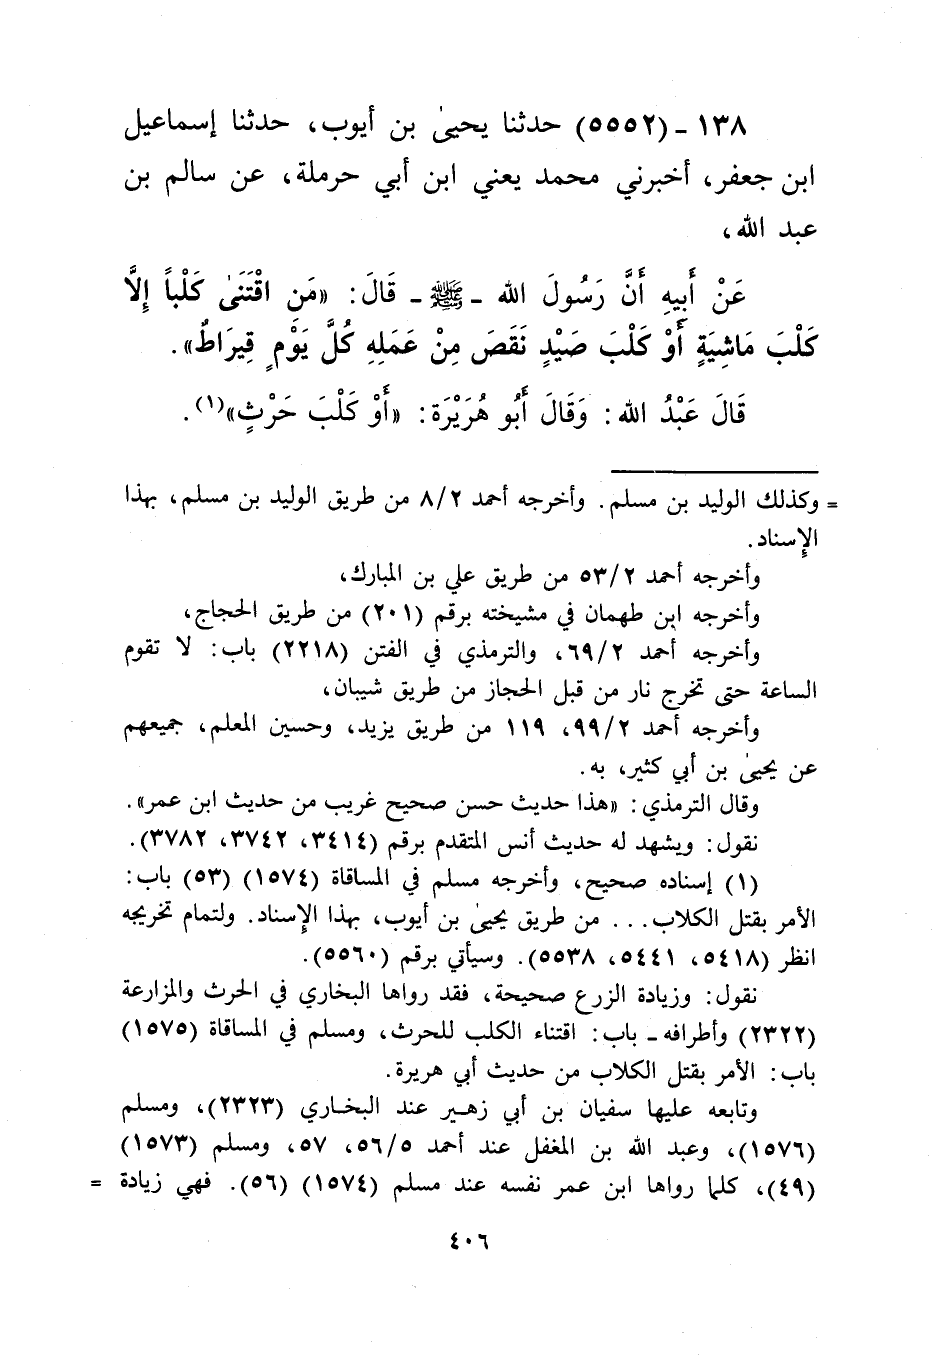 ١٣٨ ـ (٥٥٥٢) حدثنا يحيىٰ بن أيوب، حدثنا إسماعيل
ابن جعفر، أخبرني محمد يعني ابن أبي حرملة، عن سالم بن
عبد الله،
عَنْ أَبِيهِ أَنَّ رَسُولَ الله ـ ﷺ ـ قَالَ: «مَنِ اقْتَنَىٰ كَلْباً إِلاَّ
كَلْبَ مَاشِيَةٍ أَوْ كَلْبَ صَيْدٍ نَقَصَ مِنْ عَمَلِهِ كُلَّ يَوْمٍ قِيرَاطٌ».
قَالَ عَبْدُ الله: وَقَالَ أَبُو هُرَيْرَة: «أَوْ كَلْبَ حَرْثٍ»(١).
= وكذلك الوليد بن مسلم. وأخرجه أحمد ٨/٢ من طريق الوليد بن مسلم، بهذا
الإِسناد.
وأخرجه أحمد ٥٣/٢ من طريق علي بن المبارك،
وأخرجه ابن طهمان في مشيخته برقم (٢٠١) من طريق الحجاج,
وأخرجه أحمد ٦٩/٢، والترمذي في الفتن (٢٢١٨) باب: لا تقوم
الساعة حتى تخرج نار من قبل الحجاز من طريق شيبان،
وأخرجه أحمد ٩٩/٢، ١١٩ من طريق يزيد، وحسين المعلم، جميعهم
عن يحيىٰ بن أبي كثير، به.
وقال الترمذي: «هذا حديث حسن صحيح غريب من حديث ابن عمر».
نقول: ويشهد له حديث أنس المتقدم برقم (٣٤١٤، ٣٧٤٢، ٣٧٨٢).
(١) إسناده صحيح، وأخرجه مسلم في المساقاة (١٥٧٤) (٥٣) باب:
الأمر بقتل الكلاب... من طريق يحيىٰ بن أيوب، بهذا الإسناد. ولتمام تخريجه
انظر (٥٤١٨، ٥٤٤١، ٥٥٣٨). وسيأتي برقم (٥٥٦٠).
نقول: وزيادة الزرع صحيحة، فقد رواها البخاري في الحرث والمزارعة
(٢٣٢٢) وأطرافه ـ باب: اقتناء الكلب للحرث، ومسلم في المساقاة (١٥٧٥)
باب: الأمر بقتل الكلاب من حديث أبي هريرة.
وتابعه عليها سفيان بن أبي زهير عند البخاري (٢٣٢٣)، ومسلم
(١٥٧٦)، وعبد الله بن المغفل عند أحمد ٥٦/٥، ٥٧، ومسلم (١٥٧٣)
(٤٩)، كلما رواها ابن عمر نفسه عند مسلم (١٥٧٤) (٥٦). فهي زيادة =
٤٠٦